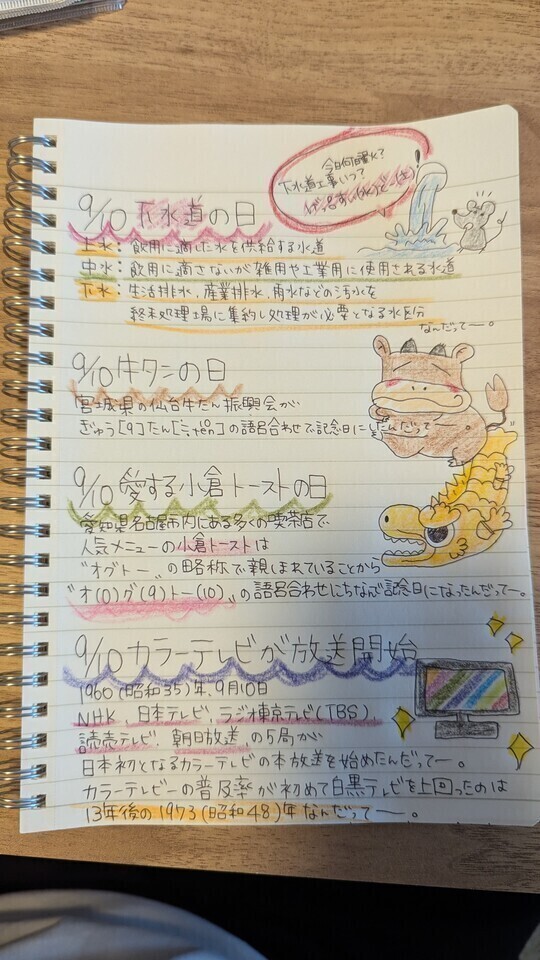 今日何曜日?
下水道工事いつ?
9/10 下水道の日
上水：飲用に適した水を供給する水道
中水：飲用に適さないが雑用や工業用に使用される水道
下水：生活排水、産業排水、雨水などの汚水を
終末処理場に集約し処理が必要となる水区分
なんだってー。
9/10 牛タンの日
宮城県の仙台牛たん振興会が
ぎゅう[9]たん[ten]の語呂合わせで記念日にしたんだってー。
9/10 愛する小倉トーストの日
愛知県名古屋市内にある多くの喫茶店で
人気メニューの小倉トーストは
"オグトー"の略称で親しまれていることから
"オ(0)グ(9)トー(10)"の語呂合わせにちなんで記念日になったんだってー。
9/10 カラーテレビが放送開始
1960(昭和35)年、9月10日
NHK、日本テレビ、ラジオ東京テレビ(TBS)
読売テレビ、朝日放送、の5局が
日本初となるカラーテレビの本放送を始めたんだってー。
カラーテレビーの普及率が初めて白黒テレビを上回ったのは
13年後の1973(昭和48)年なんだってー。